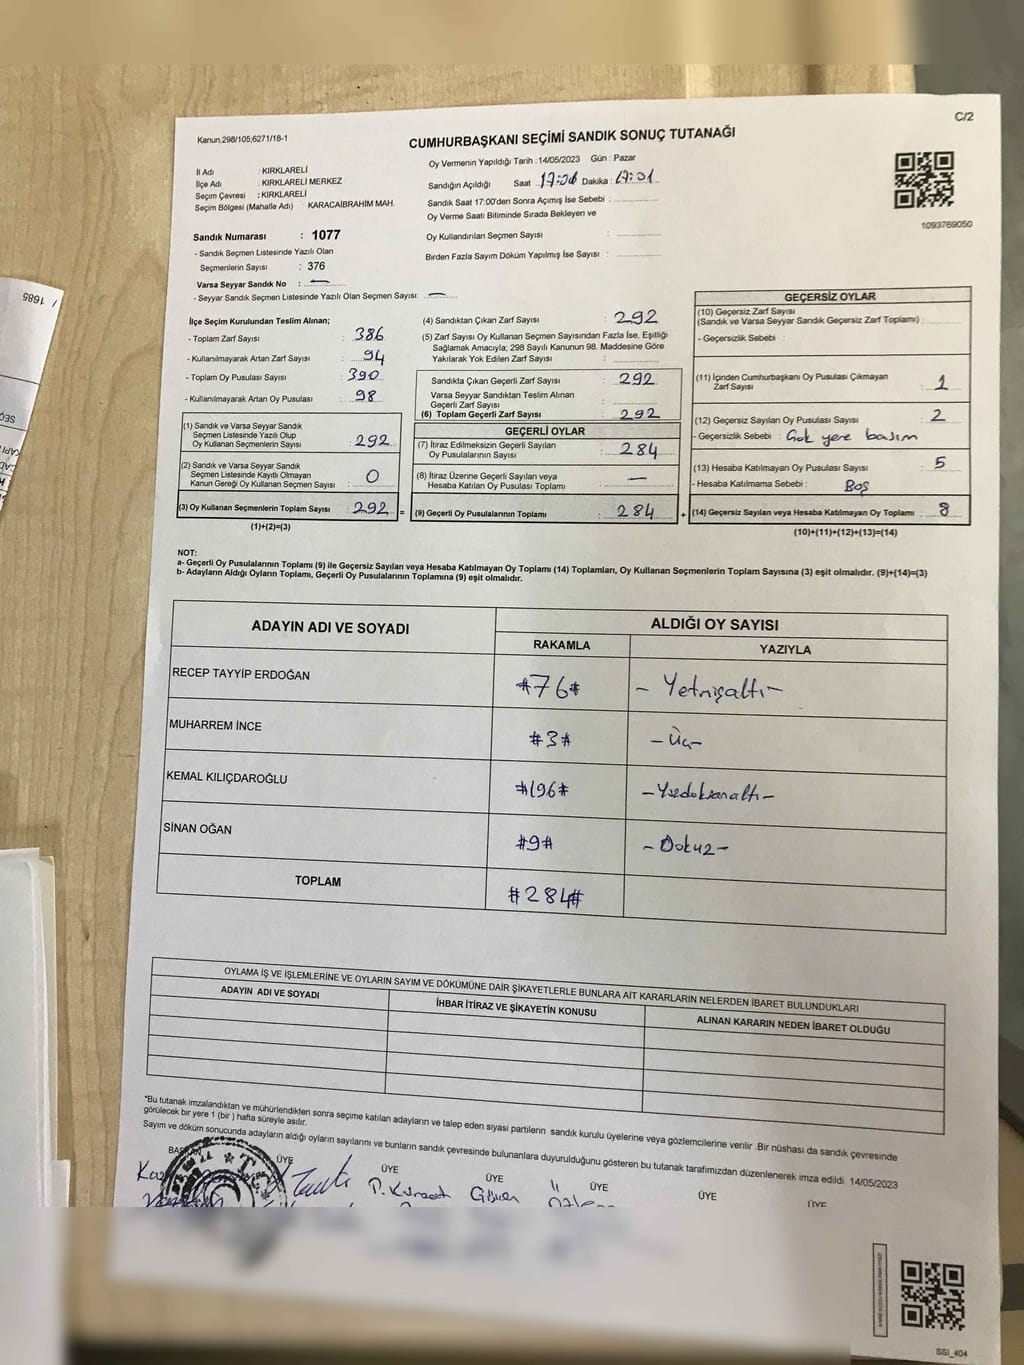 C/2
Kanun:298/105;6271/18-1
CUMHURBAŞKANI SEÇİMİ SANDIK SONUÇ TUTANAĞI
İl Adı : KIRKLARELİ
İlçe Adı : KIRKLARELİ MERKEZ
Seçim Çevresi : KIRKLARELİ
Seçim Bölgesi (Mahalle Adı) : KARACAİBRAHİM MAH.
Oy Vermenin Yapıldığı Tarih : 14/05/2023 Gün : Pazar
Sandığın Açıldığı Saat Dakika : 17:01
Sandık Saat 17:00'den Sonra Açımış İse Sebebi :
Oy Verme Saati Bitiminde Sırada Bekleyen ve
Oy Kullandırılan Seçmen Sayısı :
Birden Fazla Sayım Döküm Yapılmış İse Sayısı :
1093769050
Sandık Numarası : 1077
- Sandık Seçmen Listesinde Yazılı Olan
Seçmenlerin Sayısı : 376
Varsa Seyyar Sandık No : —
- Seyyar Sandık Seçmen Listesinde Yazılı Olan Seçmen Sayısı: —
İlçe Seçim Kurulundan Teslim Alınan;
- Toplam Zarf Sayısı : 386
- Kullanılmayarak Artan Zarf Sayısı : 94
- Toplam Oy Pusulası Sayısı : 390
- Kullanılmayarak Artan Oy Pusulası : 98
(1) Sandık ve Varsa Seyyar Sandık
Seçmen Listesinde Yazılı Olup
Oy Kullanan Seçmenlerin Sayısı : 292
(2) Sandık ve Varsa Seyyar Sandık
Seçmen Listesinde Kayıtlı Olmayan
Kanun Gereği Oy Kullanan Seçmen Sayısı : 0
(3) Oy Kullanan Seçmenlerin Toplam Sayısı : 292 =
(1)+(2)=(3)
(4) Sandıktan Çıkan Zarf Sayısı : 292
(5) Zarf Sayısı Oy Kullanan Seçmen Sayısından Fazla İse, Eşitliği
Sağlamak Amacıyla; 298 Sayılı Kanunun 98. Maddesine Göre
Yakılarak Yok Edilen Zarf Sayısı :
Sandıkta Çıkan Geçerli Zarf Sayısı : 292
Varsa Seyyar Sandıktan Teslim Alınan
Geçerli Zarf Sayısı :
(6) Toplam Geçerli Zarf Sayısı : 292
GEÇERLİ OYLAR
(7) İtiraz Edilmeksizin Geçerli Sayılan
Oy Pusulalarının Sayısı : 284
(8) İtiraz Üzerine Geçerli Sayılan veya
Hesaba Katılan Oy Pusulası Toplamı : —
(9) Geçerli Oy Pusulalarının Toplamı : 284 +
GEÇERSİZ OYLAR
(10) Geçersiz Zarf Sayısı
(Sandık ve Varsa Seyyar Sandık Geçersiz Zarf Toplamı) :
- Geçersizlik Sebebi :
(11) İçinden Cumhurbaşkanı Oy Pusulası Çıkmayan
Zarf Sayısı : 1
(12) Geçersiz Sayılan Oy Pusulası Sayısı : 2
- Geçersizlik Sebebi : Çok yere basım
(13) Hesaba Katılmayan Oy Pusulası Sayısı : 5
- Hesaba Katılmama Sebebi : Boş
(14) Geçersiz Sayılan veya Hesaba Katılmayan Oy Toplamı : 8
(10)+(11)+(12)+(13)=(14)
NOT:
a- Geçerli Oy Pusulalarının Toplamı (9) ile Geçersiz Sayılan veya Hesaba Katılmayan Oy Toplamı (14) Toplamları, Oy Kullanan Seçmenlerin Toplam Sayısına (3) eşit olmalıdır. (9)+(14)=(3)
b- Adayların Aldığı Oyların Toplamı, Geçerli Oy Pusulalarının Toplamına (9) eşit olmalıdır.
ADAYIN ADI VE SOYADI
ALDIĞI OY SAYISI
RAKAMLA YAZIYLA
RECEP TAYYİP ERDOĞAN #76# - Yetmişaltı -
MUHARREM İNCE #3# - Üç -
KEMAL KILIÇDAROĞLU #196# - Yüzdoksanaltı -
SİNAN OĞAN #9# - Dokuz -
TOPLAM #284#
OYLAMA İŞ VE İŞLEMLERİNE VE OYLARIN SAYIM VE DÖKÜMÜNE DAİR ŞİKAYETLERLE BUNLARA AİT KARARLARIN NELERDEN İBARET BULUNDUKLARI
ADAYIN ADI VE SOYADI İHBAR İTİRAZ VE ŞİKAYETİN KONUSU ALINAN KARARIN NEDEN İBARET OLDUĞU
*Bu tutanak imzalandıktan ve mühürlendikten sonra seçime katılan adayların ve talep eden siyasi partilerin sandık kurulu üyelerine veya gözlemcilerine verilir. Bir nüshası da sandık çevresinde
görülecek bir yere 1 (bir) hafta süreyle asılır.
Sayım ve döküm sonucunda adayların aldığı oyların sayılarını ve bunların sandık çevresinde bulunanlara duyurulduğunu gösteren bu tutanak tarafımızdan düzenlenerek imza edildi 14/05/2023
BAŞKAN ÜYE ÜYE ÜYE ÜYE ÜYE ÜYE
SSI_404
/ 1685